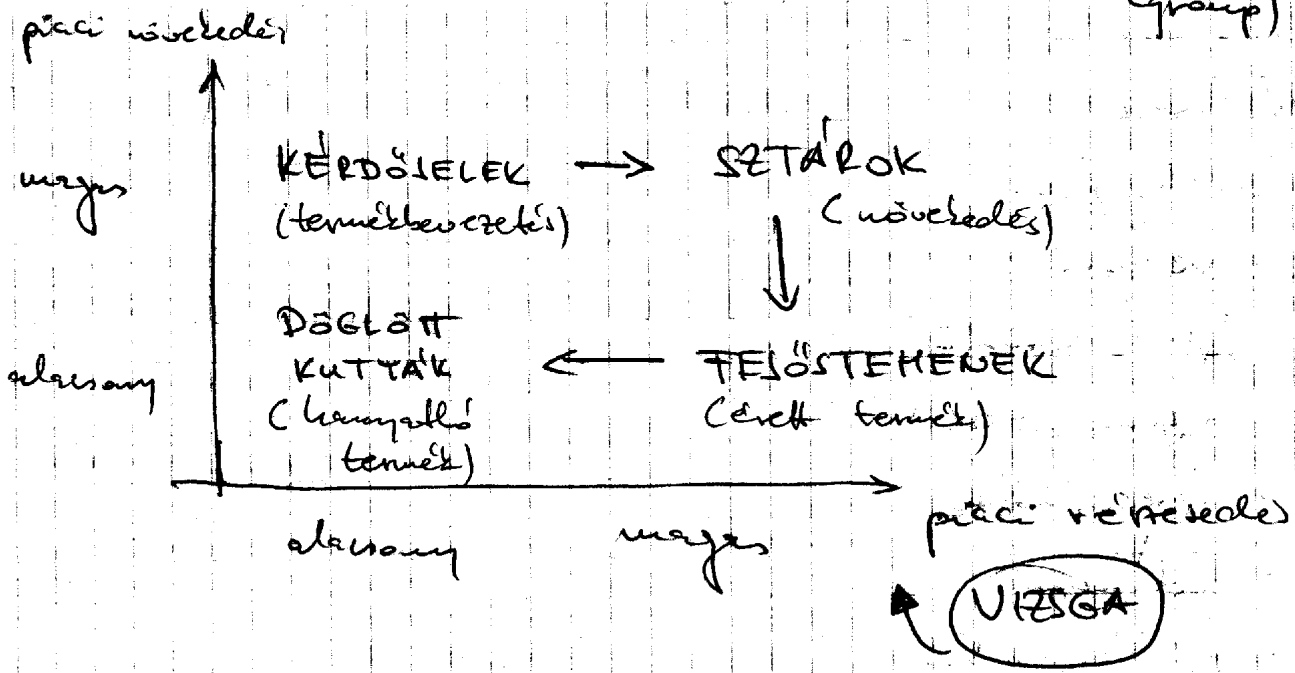 Group)
piaci növekedés
magas
KÉRDŐJELEK → SZTÁROK
(termékbevezetés)
(növekedés)
↓
alacsony
DÖGLÖTT
KUTYÁK
← FEJŐSTEHENEK
(hanyatló
termék)
(érett termék)
alacsony
magas
piaci részesedés
VIZSGA